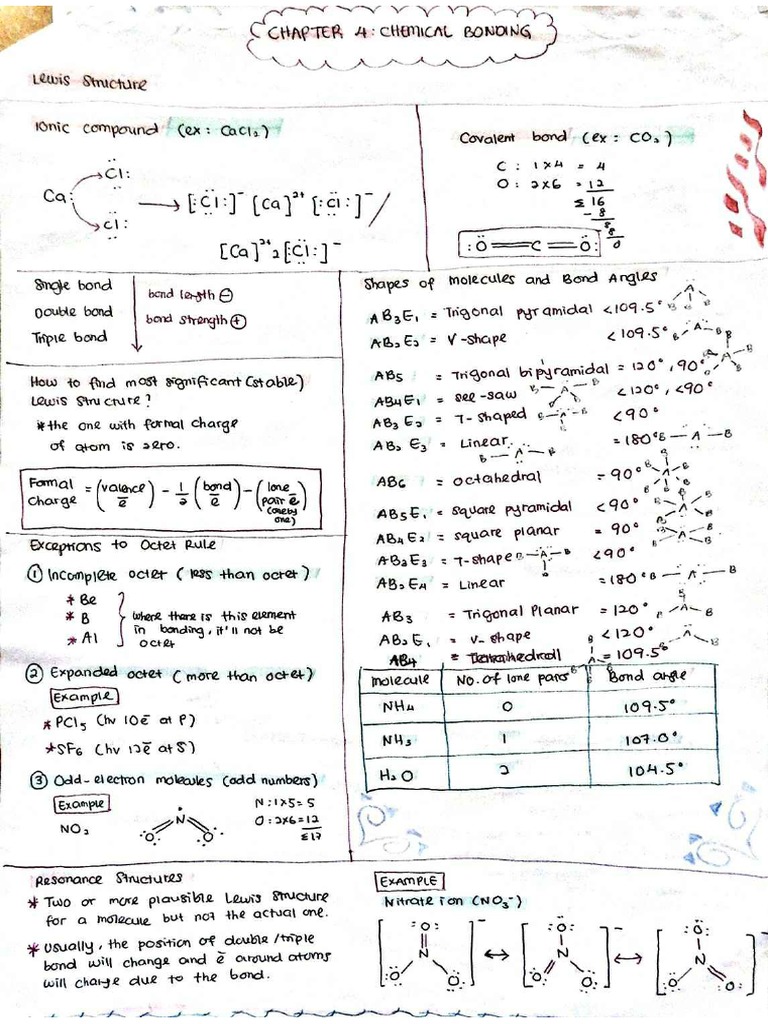 CHAPTER 4: CHEMICAL BONDING
Lewis Structure
Ionic compound (ex: CaCl₂)
Ca: Cl: Cl: → [:Cl:]⁻ [Ca]²⁺ [:Cl:]⁻ /
[Ca]²⁺ 2[:Cl:]⁻
Covalent bond (ex: CO₂)
C : 1x4 = 4
O : 2x6 = 12
Σ 16
- 8
8
8
0
:O=C=O:
Single bond
Double bond
Triple bond
bond length ⊖
bond strength ⊕
How to find most significant (stable)
Lewis Structure?
*the one with formal charge
of atom is zero.
Formal Charge = (valence ē) - 1/2 (bond ē) - (lone pair ē (one by one))
Exceptions to Octet Rule
① Incomplete octet (less than octet)
* Be
* B
* Al
where there is this element
in bonding, it'll not be
octet
② Expanded octet (more than octet)
Example
*PCl₅ (hv 10ē at P)
*SF₆ (hv 12ē at S)
③ Odd-electron molecules (odd numbers)
Example
NO₂
O N O
N : 1x5 = 5
O : 2x6 = 12
Σ 17
Shapes of molecules and Bond Angles
AB₃E₁ = Trigonal pyramidal <109.5° A B B B
AB₂E₂ = V-shape <109.5° B A B
AB₅ = Trigonal bipyramidal = 120°, 90°
AB₄E₁ = see-saw <120°, <90°
AB₃E₂ = T-shaped <90°
AB₂E₃ = Linear = 180° B-A-B
AB₆ = octahedral = 90°
AB₅E₁ = square pyramidal <90°
AB₄E₂ = square planar = 90°
AB₃E₃ = T-shape <90°
AB₂E₄ = Linear = 180° B-A-B
AB₃ = Trigonal Planar = 120°
AB₂E₁ = V-shape <120°
AB₄ = Tetrahedral = 109.5°
molecule No. of lone pairs Bond angle
NH₄ 0 109.5°
NH₃ 1 107.0°
H₂O 2 104.5°
Resonance Structures
* Two or more plausible Lewis Structure
for a molecule but not the actual one.
* Usually, the position of double/triple
bond will change and ē around atoms
will change due to the bond.
EXAMPLE
Nitrate ion (NO₃⁻)
[O N O O]⁻ ↔ [O N O O]⁻ ↔ [O N O O]⁻